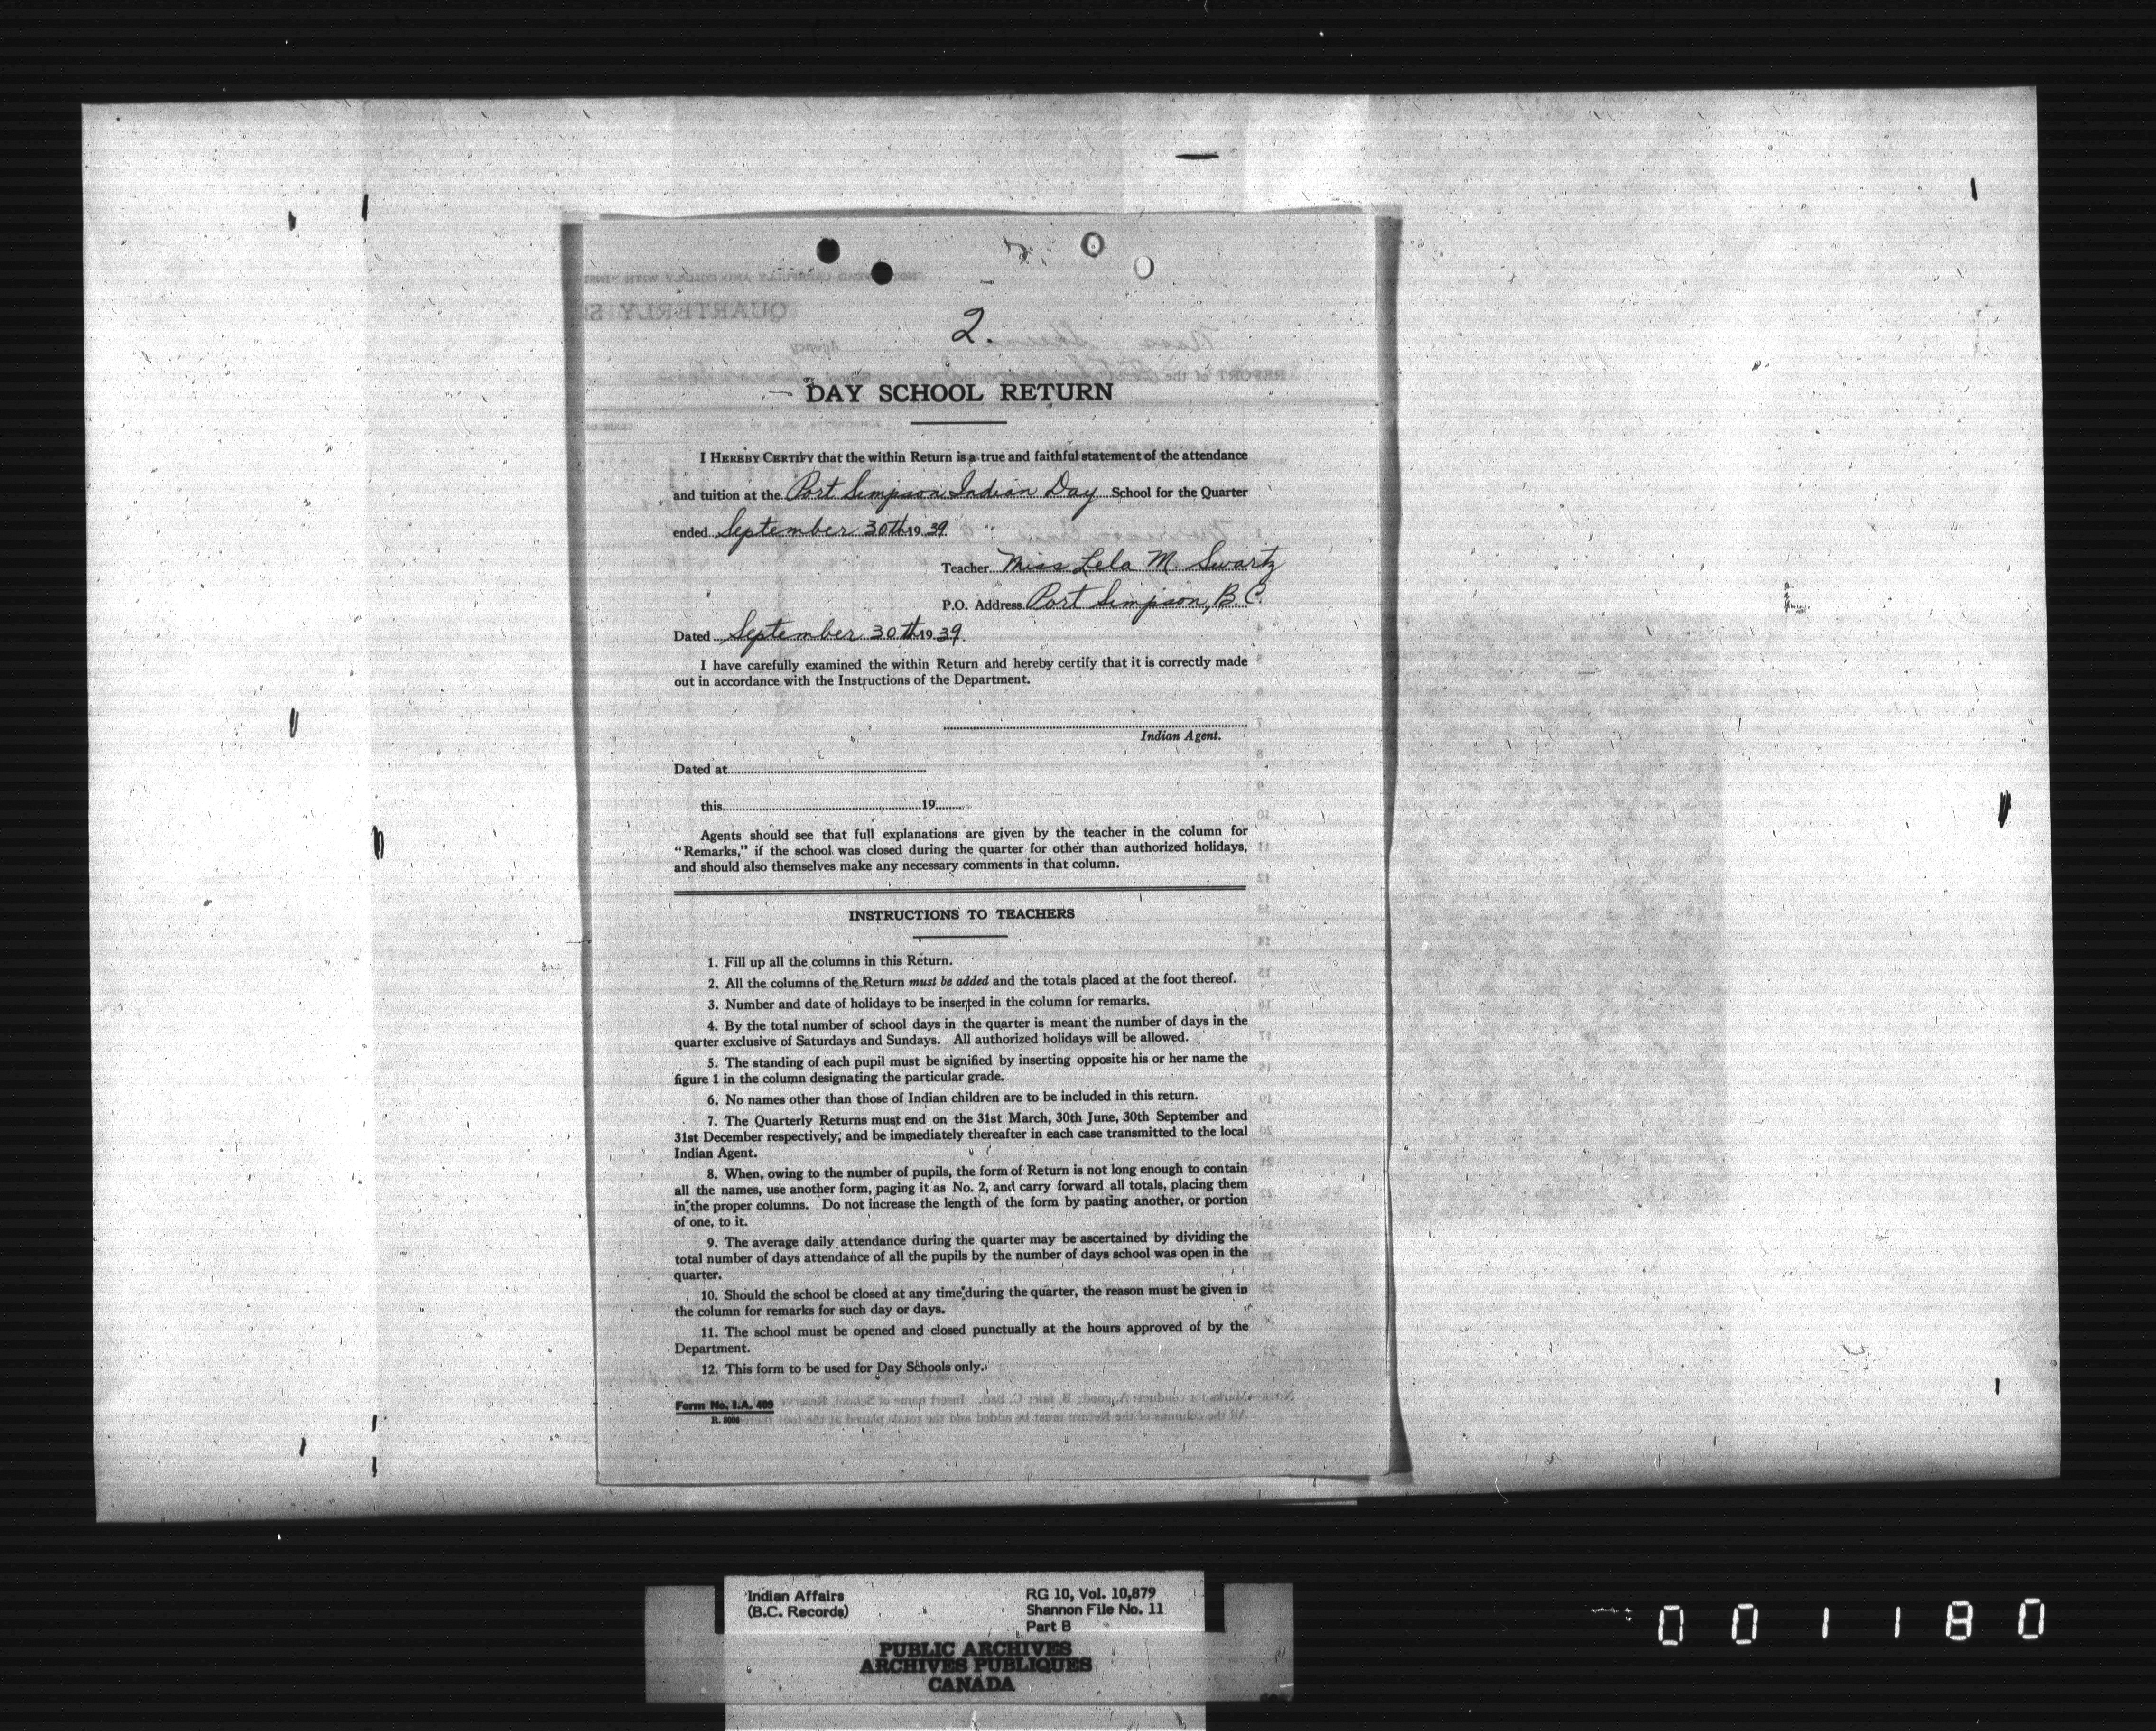 2.
DAY SCHOOL RETURN
I HEREBY CERTIFY that the within Return is a true and faithful statement of the attendance
and tuition at the Port Simpson Indian Day School for the Quarter
ended September 30th 1939
Teacher Miss Lela M. Swartz
P.O. Address Port Simpson, B.C.
Dated September 30th 1939.
I have carefully examined the within Return and hereby certify that it is correctly made
out in accordance with the Instructions of the Department.
Indian Agent.
Dated at
this 19
Agents should see that full explanations are given by the teacher in the column for
"Remarks," if the school was closed during the quarter for other than authorized holidays,
and should also themselves make any necessary comments in that column.
INSTRUCTIONS TO TEACHERS
1. Fill up all the columns in this Return.
2. All the columns of the Return must be added and the totals placed at the foot thereof.
3. Number and date of holidays to be inserted in the column for remarks.
4. By the total number of school days in the quarter is meant the number of days in the
quarter exclusive of Saturdays and Sundays. All authorized holidays will be allowed.
5. The standing of each pupil must be signified by inserting opposite his or her name the
figure 1 in the column designating the particular grade.
6. No names other than those of Indian children are to be included in this return.
7. The Quarterly Returns must end on the 31st March, 30th June, 30th September and
31st December respectively, and be immediately thereafter in each case transmitted to the local
Indian Agent.
8. When, owing to the number of pupils, the form of Return is not long enough to contain
all the names, use another form, paging it as No. 2, and carry forward all totals, placing them
in the proper columns. Do not increase the length of the form by pasting another, or portion
of one, to it.
9. The average daily attendance during the quarter may be ascertained by dividing the
total number of days attendance of all the pupils by the number of days school was open in the
quarter.
10. Should the school be closed at any time during the quarter, the reason must be given in
the column for remarks for such day or days.
11. The school must be opened and closed punctually at the hours approved of by the
Department.
12. This form to be used for Day Schools only.
Form No. I.A. 409
Indian Affairs
(B.C. Records)
RG 10, Vol. 10,879
Shannon File No. 11
Part B
PUBLIC ARCHIVES
ARCHIVES PUBLIQUES
CANADA
001180